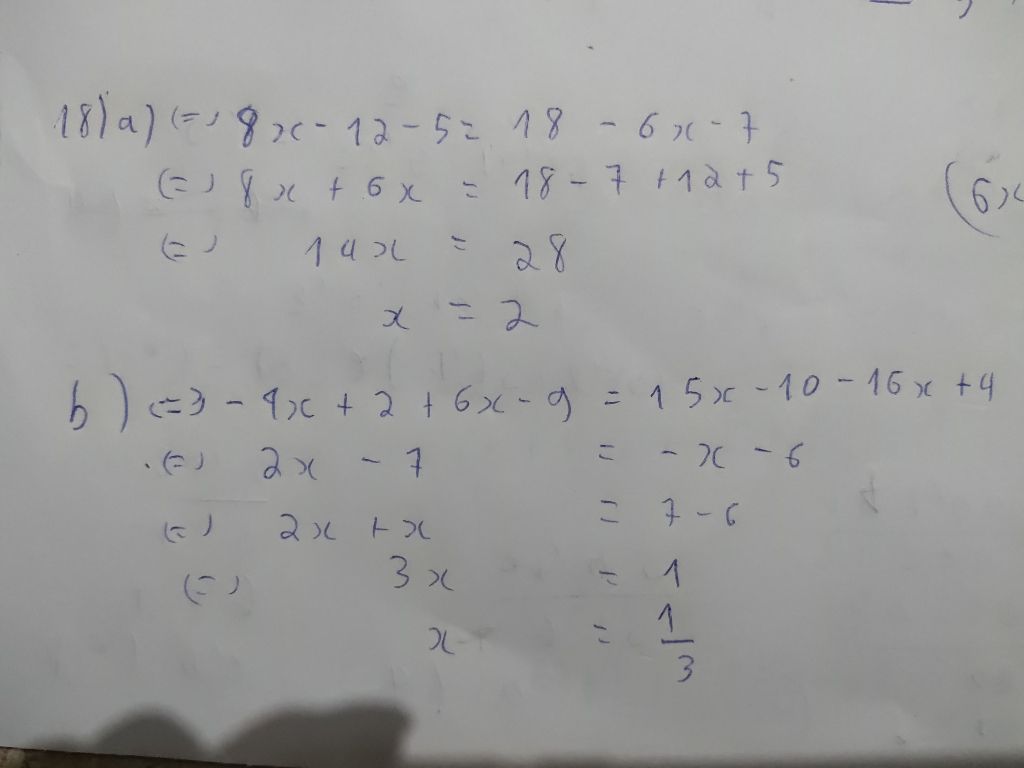 18) a) <=> 8x - 12 - 5 = 18 - 6x - 7
<=> 8x + 6x = 18 - 7 + 12 + 5
(6x
<=> 14x = 28
x = 2
b) <=> - 4x + 2 + 6x - 9 = 15x - 10 - 16x + 4
<=> 2x - 7 = - x - 6
<=> 2x + x = 7 - 6
<=> 3x = 1
x = 1/3